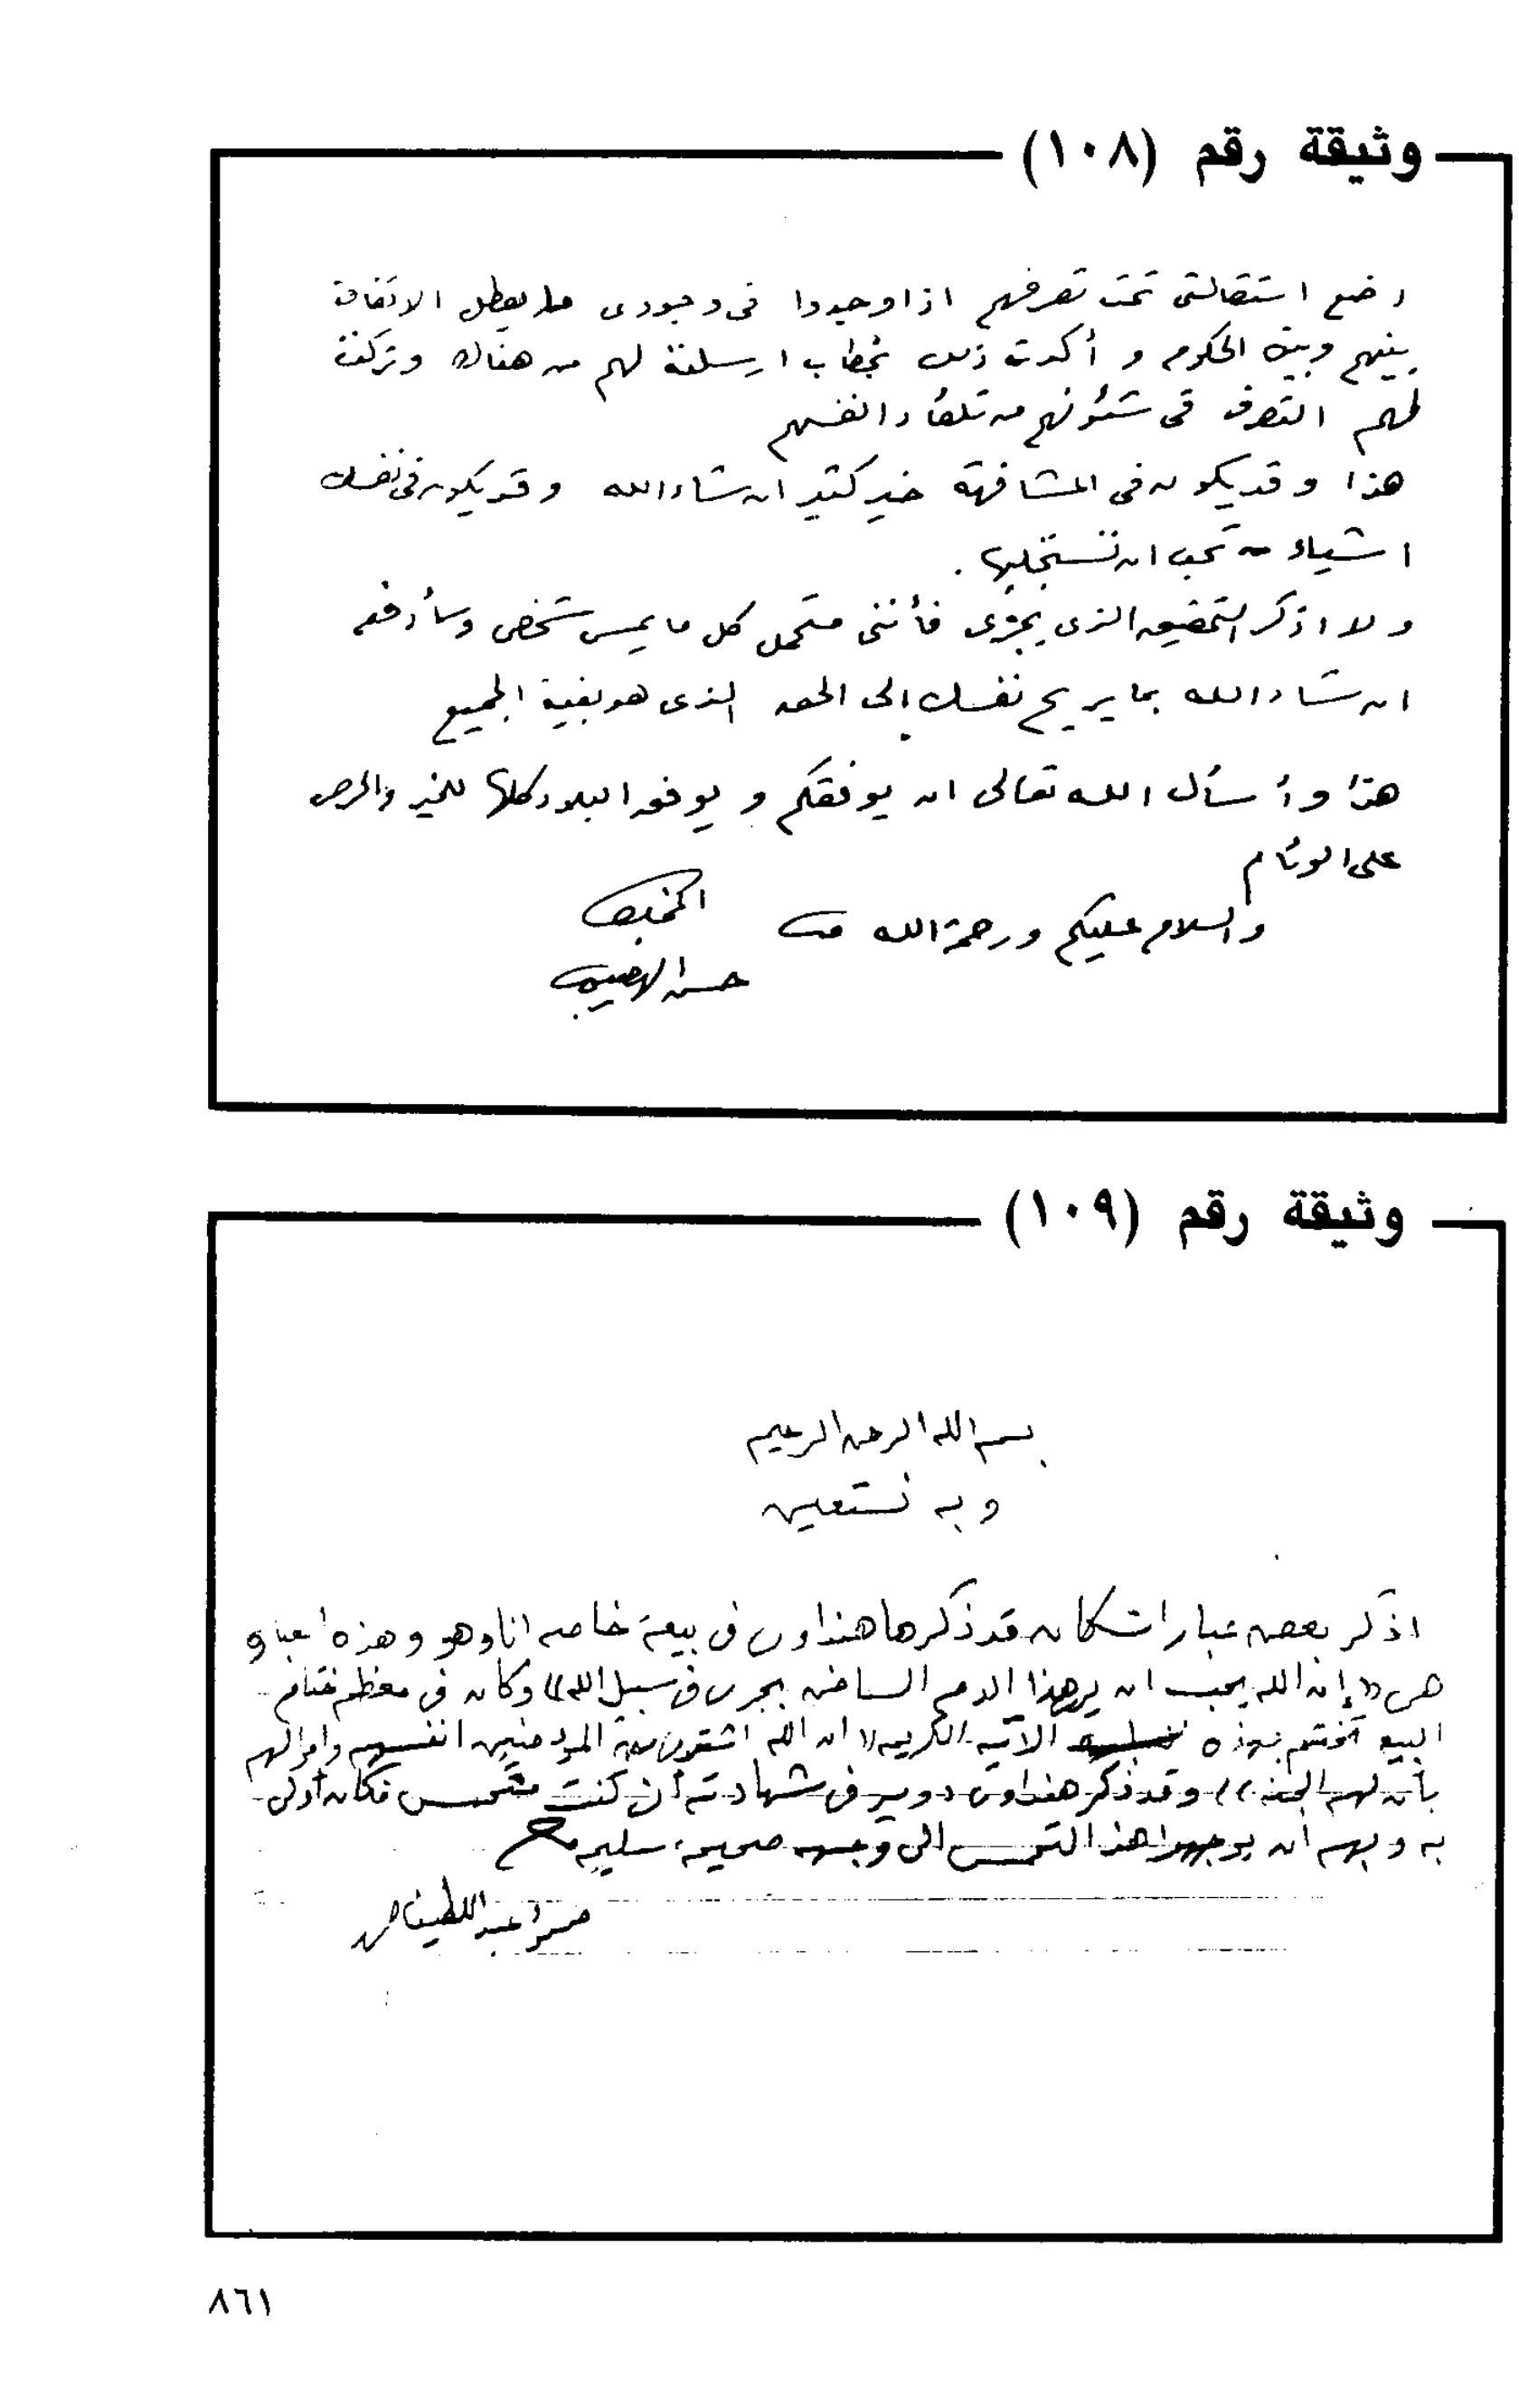 وثيقة رقم (١٠٨)
اضع استقالتى تحت تصرفهم اذا وجدوا فى وجودى ما يعطل الاتفاق
بينهم وبين الحكومه و أكدت ذلك بخطاب ارسلته لهم من هناك وتركت
لهم التصرف فى شئونهم من تلقاء انفسهم
هذا وقد يكون فى المشافهة خير كثير ان شاء الله وقد يكون فى نفسك
اشياء تحب ان تستجليها .
ولا اذكر التحقيق الذى يجرى فأننى متحمل كل ما يمس شخصى وسأدفعه
ان شاء الله بما يريح نفسك إلى الحق الذى هو بغية الجميع
هذا وأسأل الله تعالى ان يوفقكم و يوفق البلاد كلها للخير والحرص
على الوئام
والسلام عليكم ورحمة الله
المخلص
حسن الهضيبى
وثيقة رقم (١٠٩)
بسم الله الرحمن الرحيم
وبه نستعين
اذكر بعض عبارات كان قد ذكرها هنداوى فى بيعة خاصه انا وهو وهذه العباره
هى «إن الله يحب ان يرى هذا الدم الساخن يجرى فى سبيل الله» وكان فى معظم ختام
البيع تختتم بهذه الآيه الكريمه «ان الله اشترى من المؤمنين انفسهم واموالهم
بأن لهم الجنه» وقد ذكر هنداوى دوير فى شهادته أن كنت متحمس فكان أولى
به وبهم ان يوجهوا هذا التحمس الى وجهه صحيحه سليمه
عبد اللطيف
٨٦١